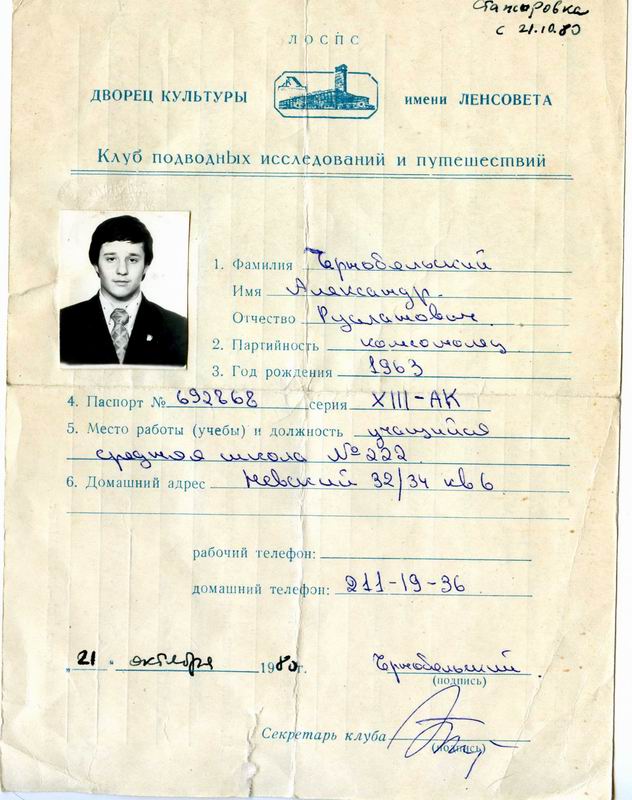 Стажировка
с 21.10.80
ЛОСПС
ДВОРЕЦ КУЛЬТУРЫ имени ЛЕНСОВЕТА
Клуб подводных исследований и путешествий
1. Фамилия Чернобельский
Имя Александр.
Отчество Русланович
2. Партийность комсомолец
3. Год рождения 1963
4. Паспорт № 692868 серия XIII-АК
5. Место работы (учебы) и должность учащийся
средняя школа № 222
6. Домашний адрес Невский 32/34 кв 6
рабочий телефон:
домашний телефон: 211-19-36
„21" октября 1980г. Чернобельский
(подпись)
Секретарь клуба
(подпись)